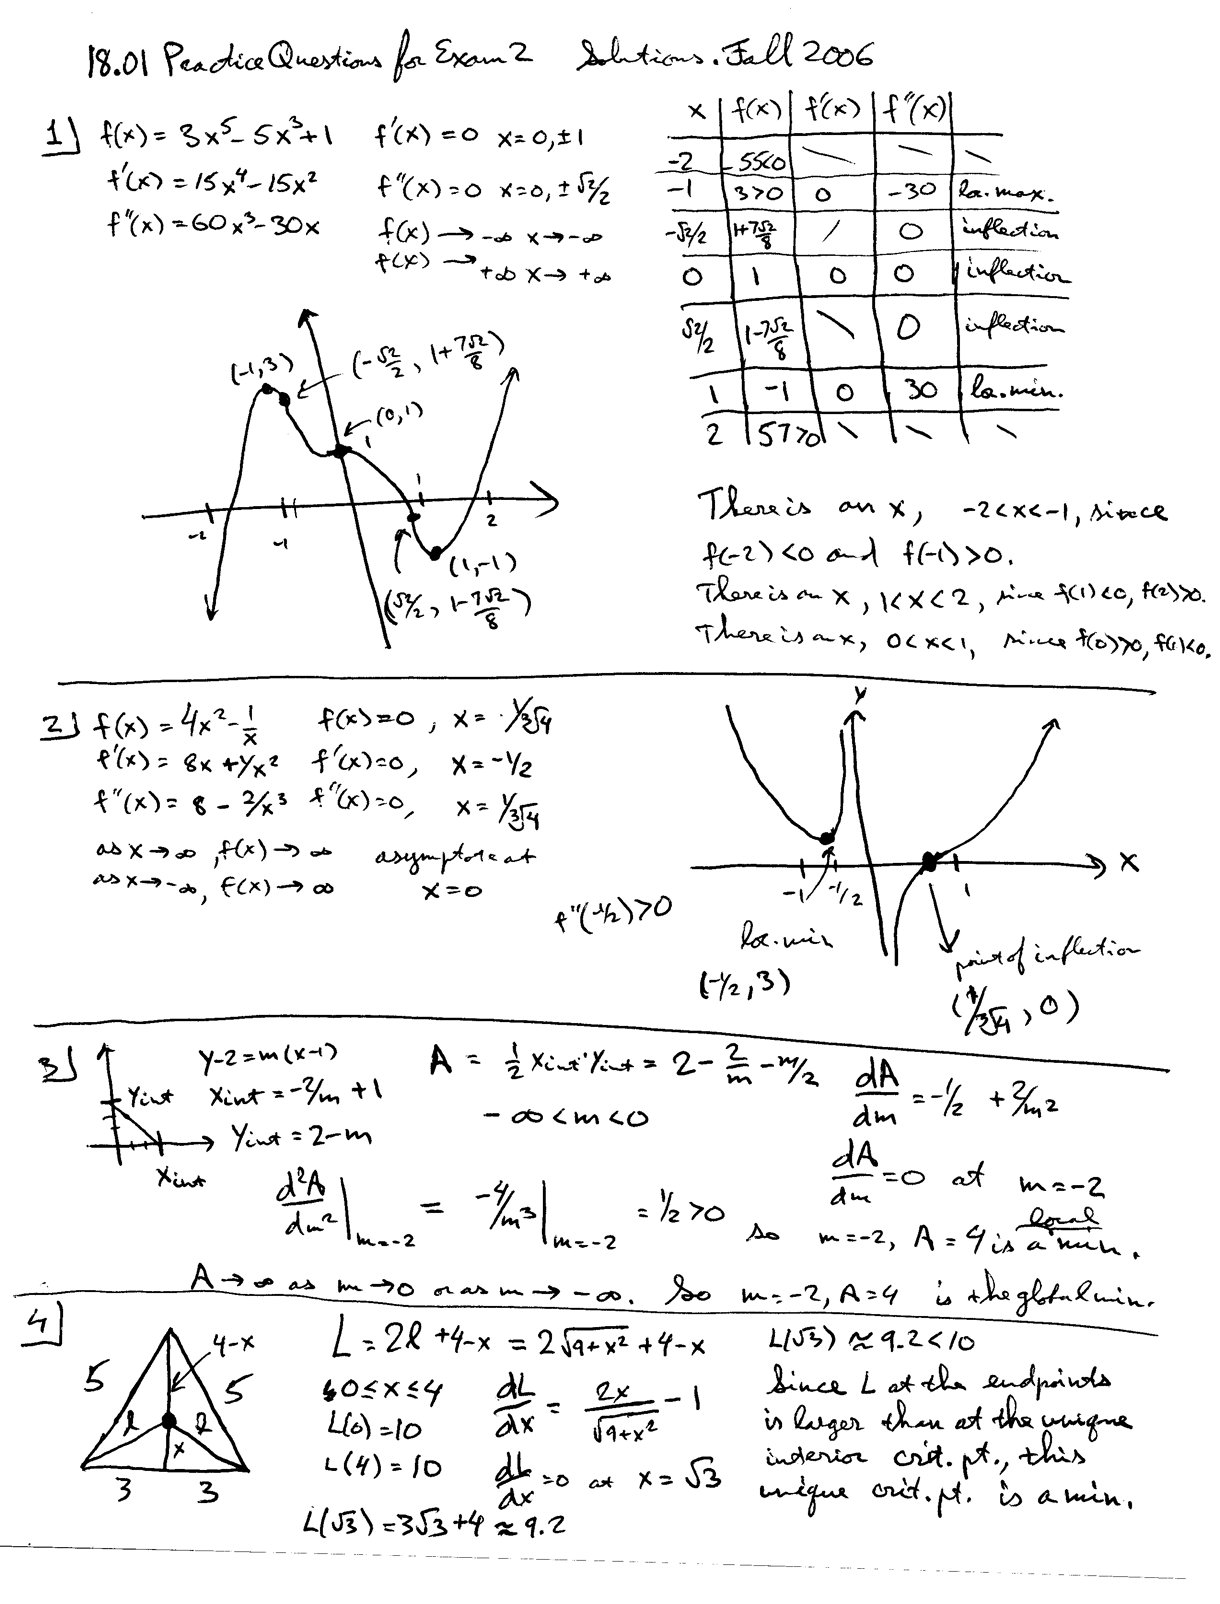 18.01 Practice Questions for Exam 2 Solutions. Fall 2006
1] f(x) = 3x⁵ - 5x³ + 1 f'(x) = 0 x = 0, ±1
f'(x) = 15x⁴ - 15x² f''(x) = 0 x = 0, ±√2/2
f''(x) = 60x³ - 30x f(x) → -∞ x → -∞
f(x) → +∞ x → +∞
x | f(x) | f'(x) | f''(x) |
-2 | -55<0 | \ | \ | \
-1 | 3>0 | 0 | -30 | loc. max.
-√2/2 | 1+7√2/8 | / | 0 | inflection
0 | 1 | 0 | 0 | inflection
√2/2 | 1-7√2/8 | \ | 0 | inflection
1 | -1 | 0 | 30 | loc. min.
2 | 57>0 | \ | \ | \
(-1,3) (-√2/2, 1+7√2/8)
(0,1)
1
-2 -1 1 2
(1,-1)
(√2/2, 1-7√2/8)
There is an x, -2<x<-1, since
f(-2)<0 and f(-1)>0.
There is an x, 1<x<2, since f(1)<0, f(2)>0.
There is an x, 0<x<1, since f(0)>0, f(1)<0.
2] f(x) = 4x² - 1/x f(x) = 0, x = 1/∛4
f'(x) = 8x + 1/x² f'(x) = 0, x = -1/2
f''(x) = 8 - 2/x³ f''(x) = 0, x = 1/∛4
as x → ∞, f(x) → ∞ asymptote at
as x → -∞, f(x) → ∞ x = 0
y
x
-1 -1/2 1
f''(-1/2)>0
loc. min
(-1/2, 3)
point of inflection
(1/∛4, 0)
3] y-2 = m(x-1) A = 1/2 Xint·Yint = 2 - 2/m - m/2 dA/dm = -1/2 + 2/m²
Yint Xint = -2/m + 1 -∞ < m < 0
Yint = 2-m
Xint
dA/dm = 0 at m = -2
d²A/dm² |m=-2 = -4/m³ |m=-2 = 1/2 > 0 so m = -2, A = 4 is a local min.
A → ∞ as m → 0 or as m → -∞. So m = -2, A = 4 is the global min.
4]
4-x
5 5
l l
x
3 3
L = 2l + 4-x = 2√9+x² + 4-x
0 ≤ x ≤ 4 dL/dx = 2x/√9+x² - 1
L(0) = 10
L(4) = 10 dL/dx = 0 at x = √3
L(√3) = 3√3+4 ≈ 9.2
L(√3) ≈ 9.2 < 10
Since L at the endpoints
is larger than at the unique
interior crit. pt., this
unique crit. pt. is a min.